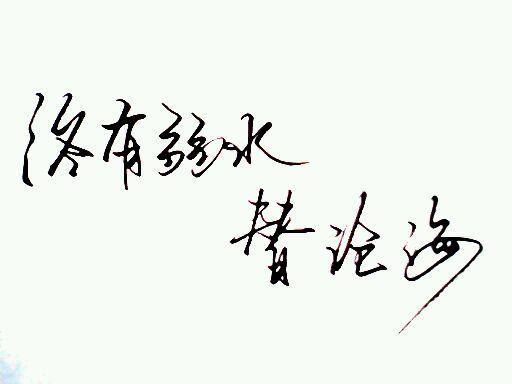 终有弱水
替沧海